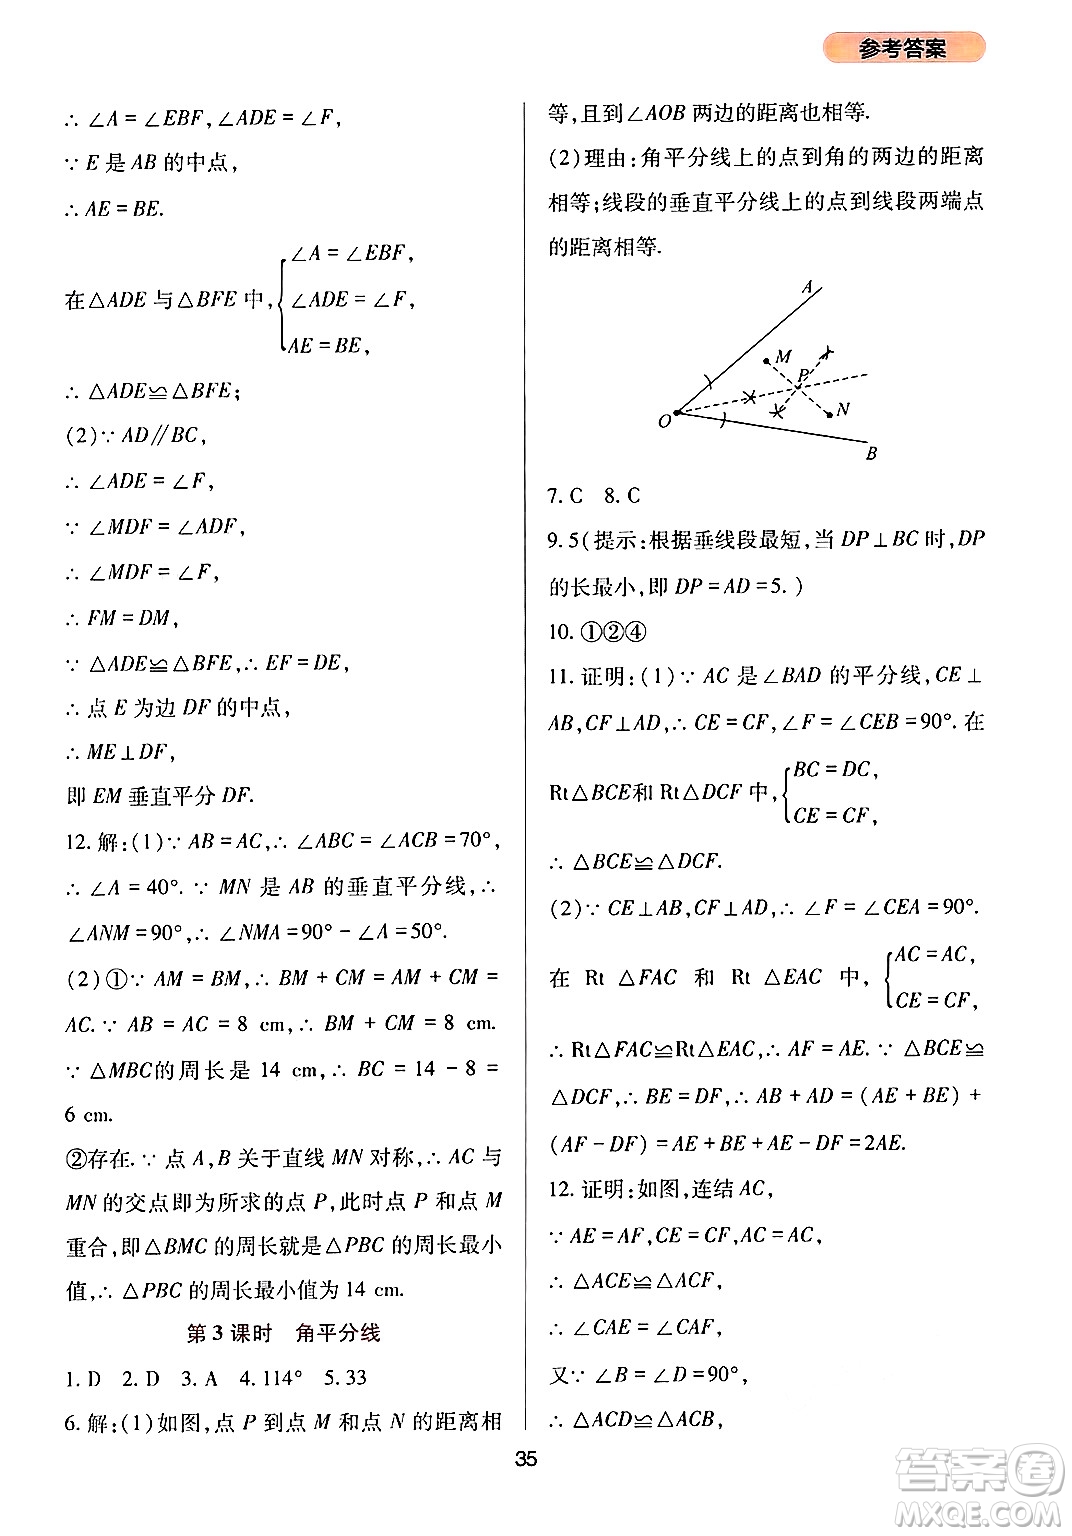 参考答案
∴ ∠A = ∠EBF,∠ADE = ∠F,
∵ E 是 AB 的中点,
∴ AE = BE.
∠A = ∠EBF,
在△ADE 与△BFE 中, ∠ADE = ∠F,
AE = BE,
∴ △ADE≌△BFE;
(2)∵ AD∥BC,
∴ ∠ADE = ∠F,
∵ ∠MDF = ∠ADF,
∴ ∠MDF = ∠F,
∴ FM = DM,
∵ △ADE≌△BFE,∴ EF = DE,
∴ 点 E 为边 DF 的中点,
∴ ME⊥DF,
即 EM 垂直平分 DF.
12. 解:(1)∵ AB = AC,∴ ∠ABC = ∠ACB = 70°,
∴ ∠A = 40°. ∵ MN 是 AB 的垂直平分线,∴
∠ANM = 90°,∴ ∠NMA = 90° − ∠A = 50°.
(2)①∵ AM = BM,∴ BM + CM = AM + CM =
AC. ∵ AB = AC = 8 cm,∴ BM + CM = 8 cm.
∵ △MBC的周长是 14 cm,∴ BC = 14 − 8 =
6 cm.
②存在. ∵ 点 A,B 关于直线 MN 对称,∴ AC 与
MN 的交点即为所求的点 P,此时点 P 和点 M
重合,即△BMC 的周长就是△PBC 的周长最小
值,∴ △PBC 的周长最小值为 14 cm.
第 3 课时 角平分线
1. D 2. D 3. A 4. 114° 5. 33
6. 解:(1)如图,点 P 到点 M 和点 N 的距离相
等,且到∠AOB 两边的距离也相等.
(2)理由:角平分线上的点到角的两边的距离
相等;线段的垂直平分线上的点到线段两端点
的距离相等.
A
M
P
N
O
B
7. C 8. C
9. 5(提示:根据垂线段最短,当 DP⊥BC 时,DP
的长最小,即 DP = AD = 5. )
10. ①②④
11. 证明:(1)∵ AC 是∠BAD 的平分线,CE⊥
AB,CF⊥AD,∴ CE = CF,∠F = ∠CEB = 90°. 在
BC = DC,
Rt△BCE和 Rt△DCF 中,
CE = CF,
∴ △BCE≌△DCF.
(2)∵ CE⊥AB,CF⊥AD,∴ ∠F = ∠CEA = 90°.
AC = AC,
在 Rt △FAC 和 Rt △EAC 中,
CE = CF,
∴ Rt△FAC≌Rt△EAC,∴ AF = AE. ∵ △BCE≌
△DCF,∴ BE = DF,∴ AB + AD = (AE + BE) +
(AF − DF) = AE + BE + AE − DF = 2AE.
12. 证明:如图,连结 AC,
∵ AE = AF,CE = CF,AC = AC,
∴ △ACE≌△ACF,
∴ ∠CAE = ∠CAF,
又∵ ∠B = ∠D = 90°,
∴ △ACD≌△ACB,
35
答案圈
MXQE.COM